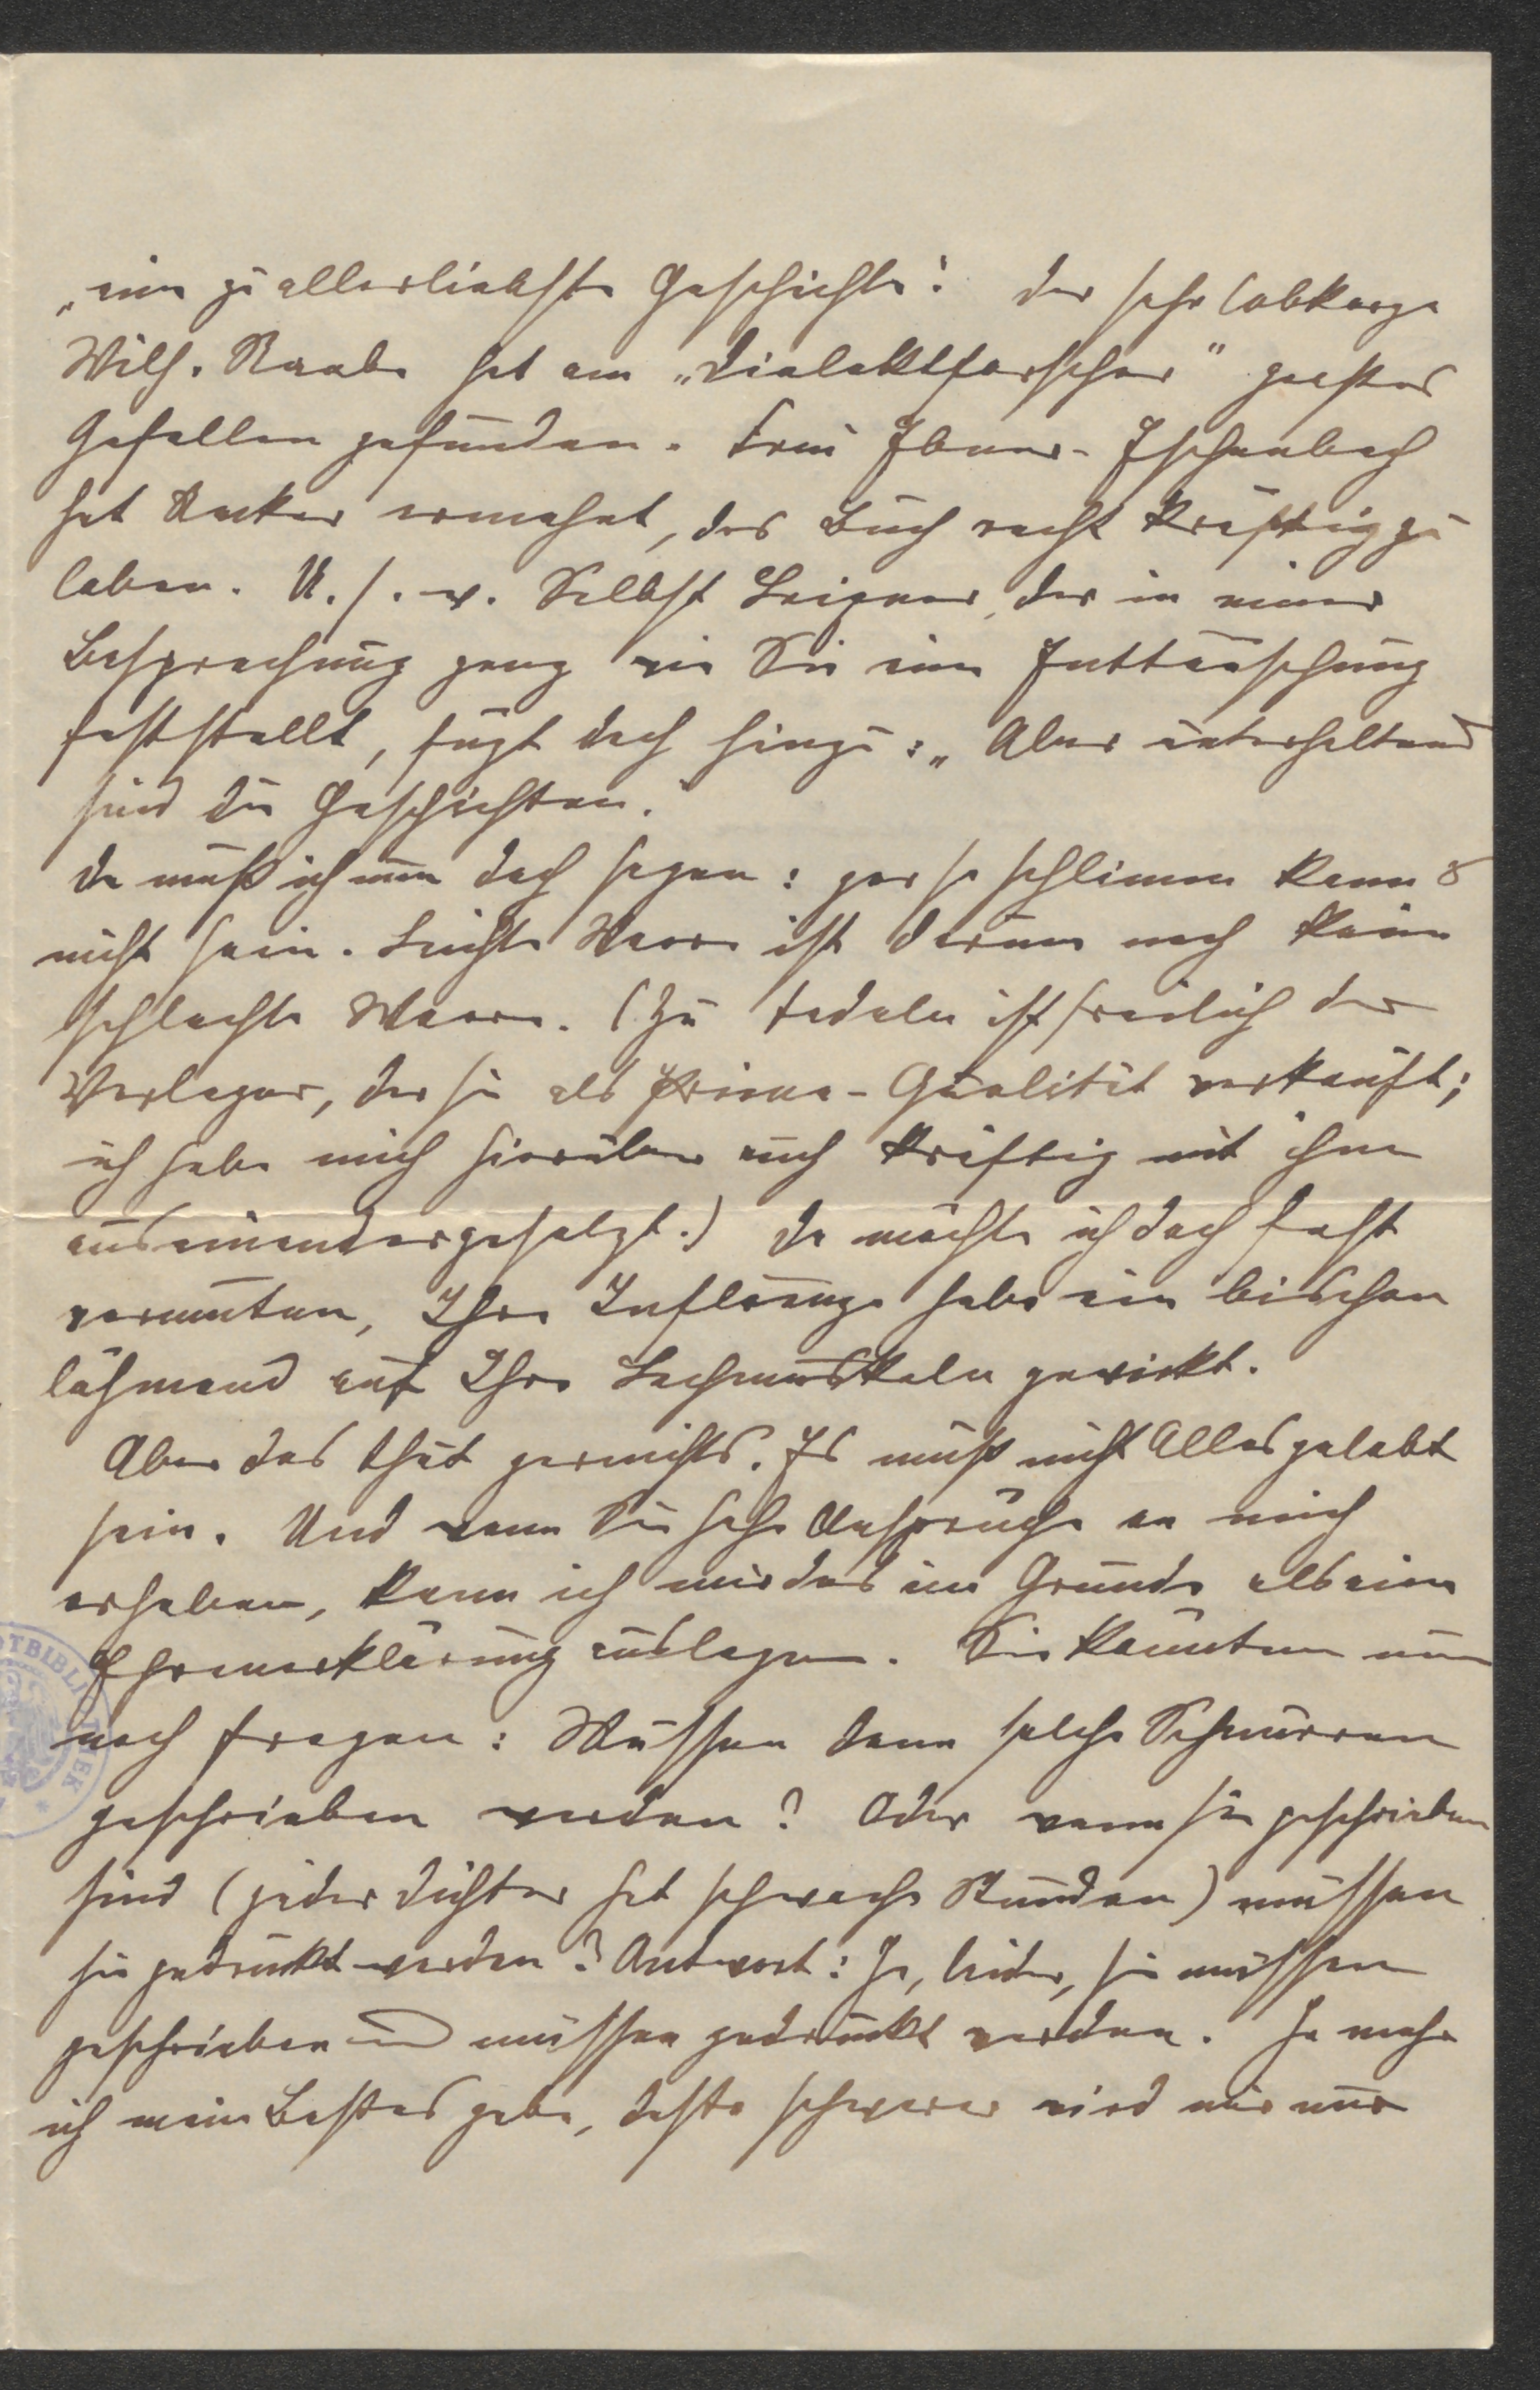 „eine zu allerliebste Geschichte". Der sehr lobkarge
Wilh. Raabe hat am „Dialektforscher" großes
Gefallen gefunden. Frau Ebner-Eschenbach
hat Necker ermahnt, das Buch recht kräftig zu
loben. U. s. w. Selbst Leixner, der in einer
Besprechung ganz wie Sie eine Enttäuschung
feststellt, fügt doch hinzu: „Aber unterhaltend
sind die Geschichten."
Da muß ich nun doch sagen: gar so schlimm kanns
nicht sein. Leichte Waare ist darum noch keine
schlechte Waare. (Zu tadeln ist freilich der
Verleger, der sie als Prima-Qualität verkauft;
ich habe mich hierüber auch kräftig mit ihm
auseinandergesetzt.) Da möchte ich doch fast
vermuten, Ihre Influenza habe ein bischen
lähmend auf Ihre Lachmuskeln gewirkt.
Aber das thut garnichts. Es muß nicht Alles gelobt
sein. Und wenn Sie hohe Ansprüche an mich
erheben, kann ich mir das im Grunde als eine
Ehrenerklärung auslegen. Sie könnten nun
noch fragen: Müssen denn solche Schnurren
geschrieben werden? Oder wenn sie geschrieben
sind (jeder Dichter hat schwache Stunden) müssen
sie gedruckt werden? Antwort: Ja, leider, sie müssen
geschrieben und müssen gedruckt werden. Je mehr
ich mein Bestes gebe, desto schwerer wird mir nur